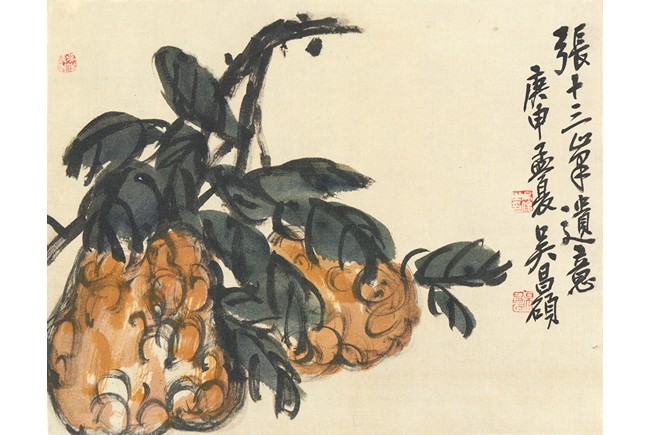 張十三峯遺意
庚申孟夏吳昌碩